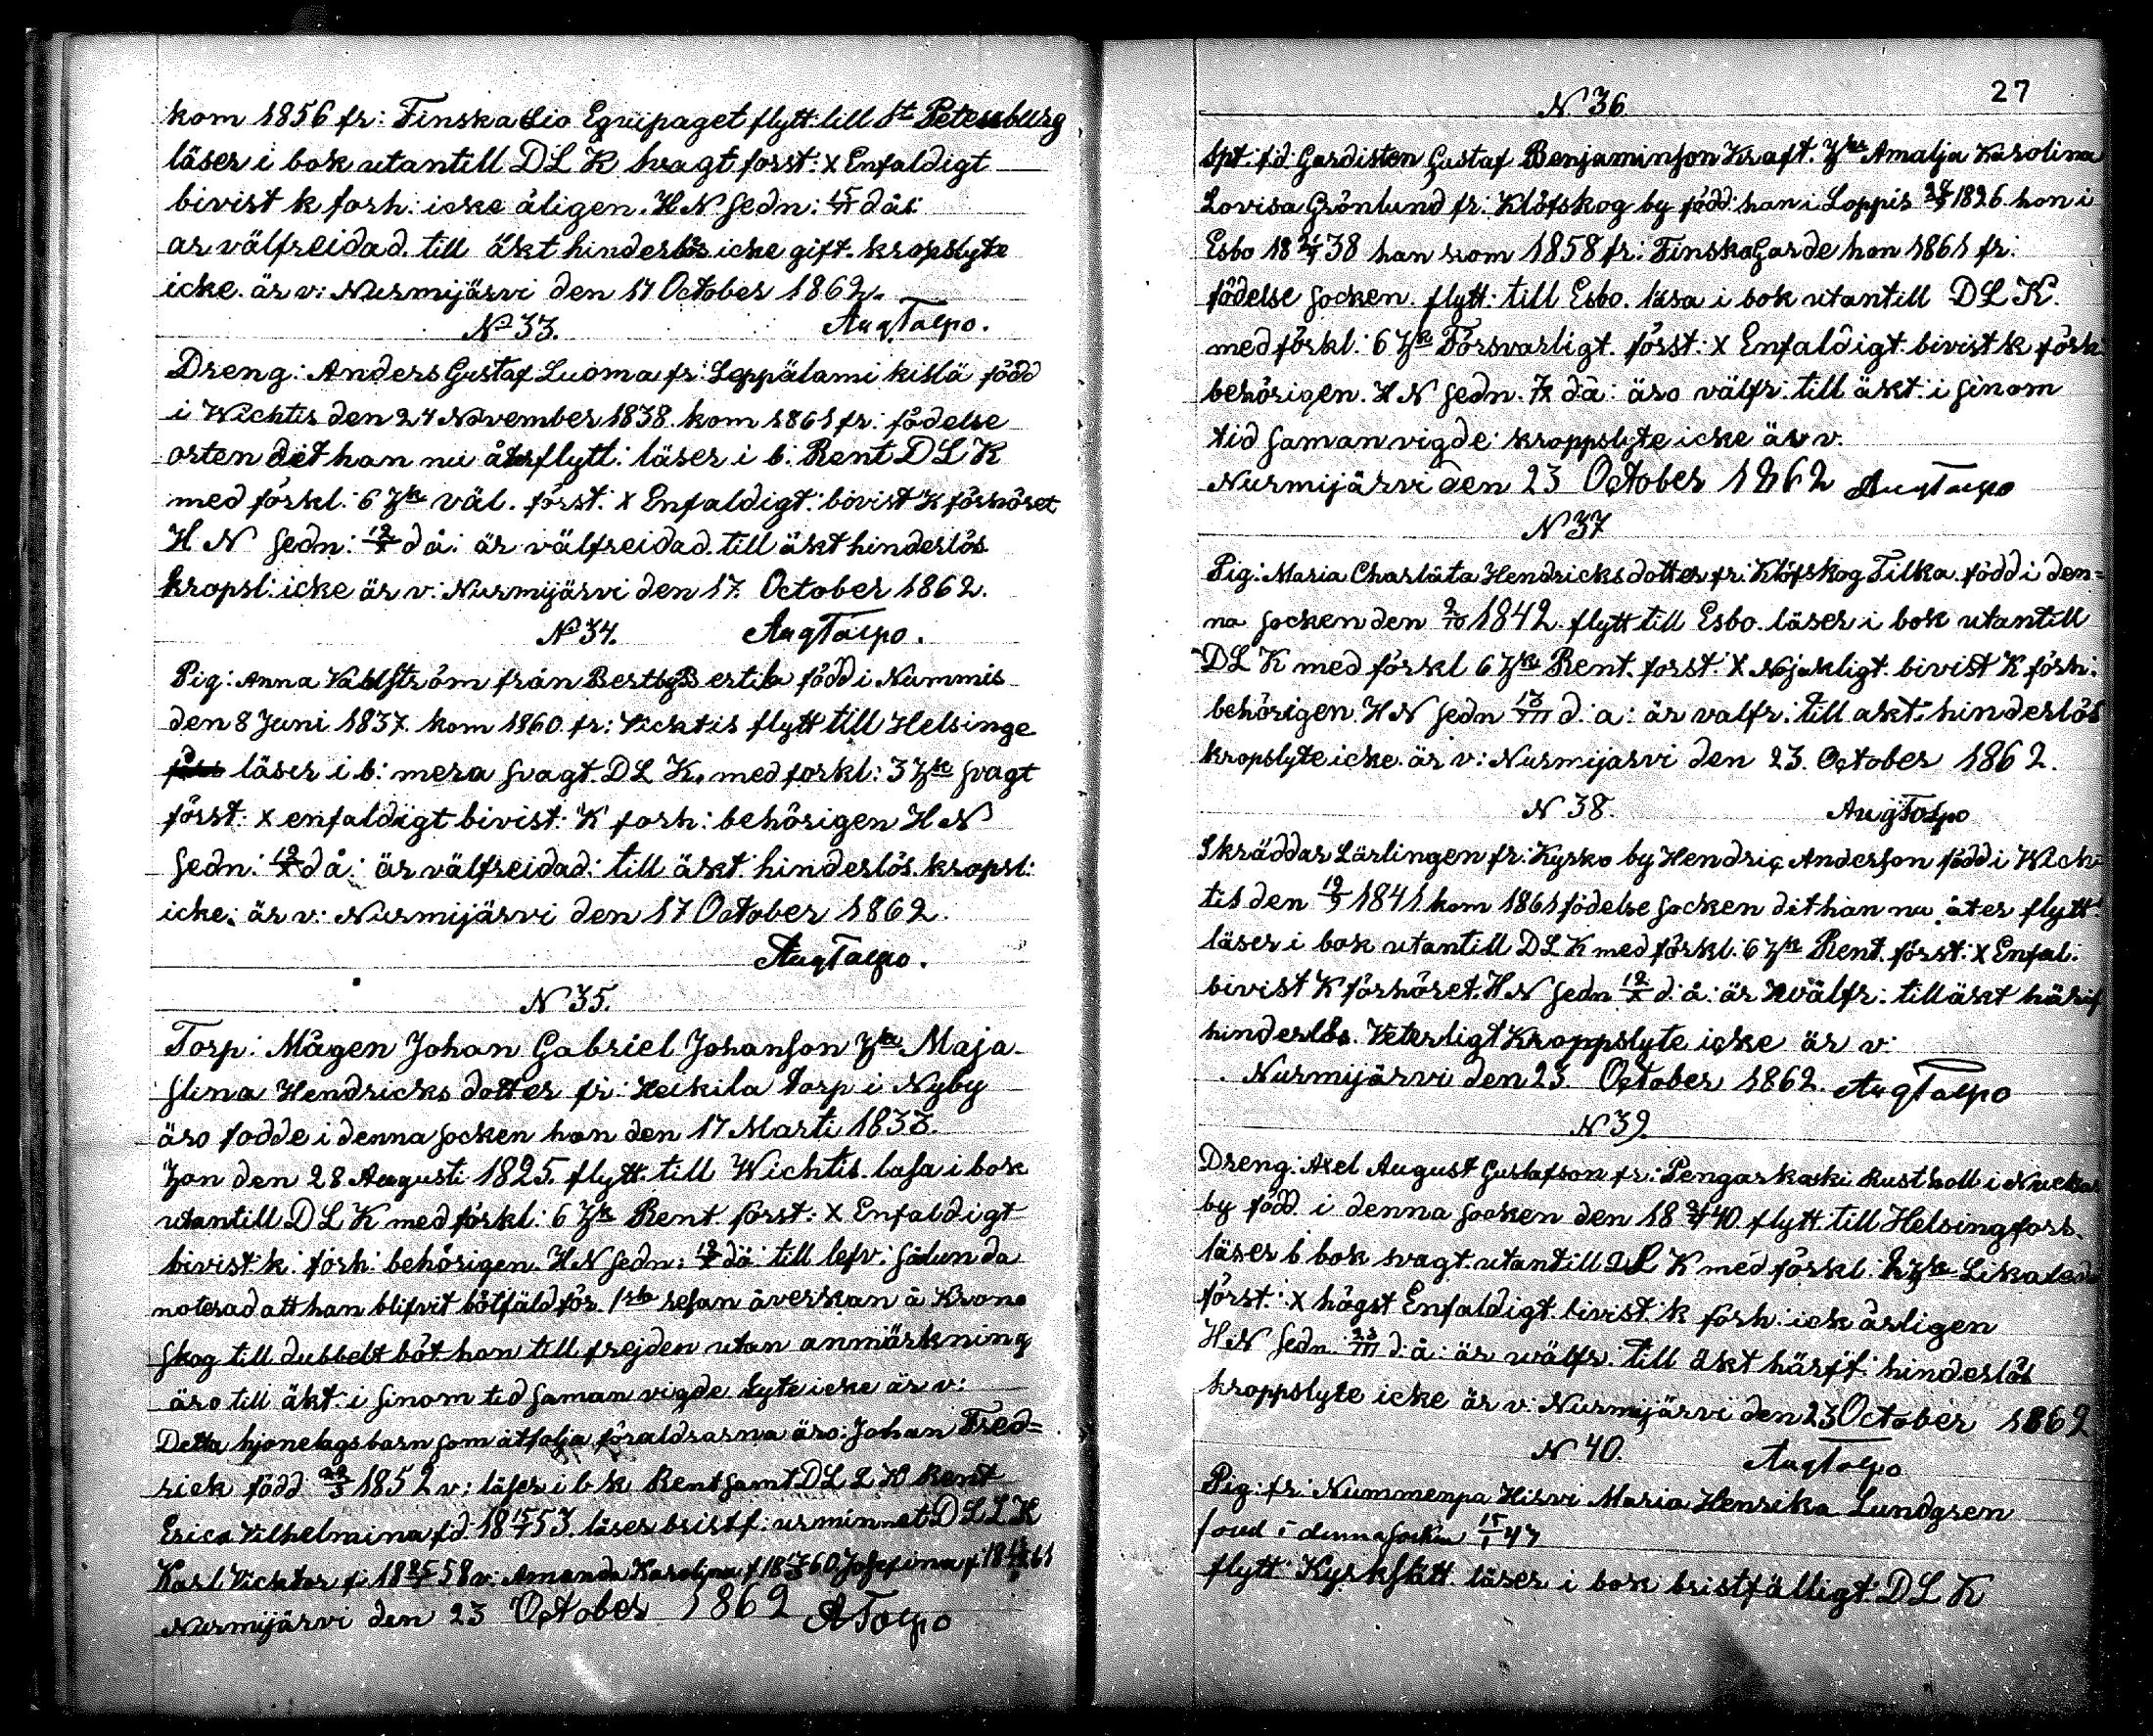 kom 1856 fr: Finska Sio Eqvipaget flytt: till St Petersburg
läser i bok utantill D L K svagt forst: x Enfaldigt
bivist k forh: icke åligen. H N sedn: 15/VI då:
ar välfreidad. till äkt hinderlös icke gift. kropslyte
icke. är v: Nurmijärvi den 17 October 1862.
No 33. AugTaepo.
Dreng: Anders Gustaf Luoma fr: Leppälami kislä född
i Wichtis den 24 November 1838. kom 1861 fr: födelse
orten dit han nu åter flytt: läser i b: Rent D L K
med förkl: 6 Hfst väl. först: x Enfaldigt: bivist K förhöret
H N sedn: 12/X då: är välfreidad. till äkt hinderlös
kropsl: icke är v: Nurmijärvi den 17. October 1862.
No 34. AugTaepo.
Pig: Anna Vahlström från Bertby Bertila född i Nummis
den 8 Juni 1837. kom 1860. fr: Vichtis flytt till Helsinge
läser i b: mera svagt. D L K. med forkl: 3 Hfst svagt
först: x enfaldigt bivist: K forh: behörigen H N
sedn: 12/X då: är välfreidad: till äkt hinderlös. kropsl:
icke: är v: Nurmijärvi den 17 October 1862.
AugTaepo.
N 35.
Torp: Mågen Johan Gabriel Johanson Hu Maja
Slina Hendricks dotter fr: Heikila Torp i Nyby
äro fodde i denna socken han den 17 Marti 1833.
hon den 28 Augusti 1825. flytt. till Wichtis. lasa i bok
utantill D L K med förkl: 6 Hfst Rent. först: x Enfaldigt
bivist k: förh: behörigen. H N sedn: 12/X då: till lefv: sålunda
noterad att han blifvit bötfäld för 1sta resan åverkan å Krono
skog till dubbelt böt hon till frejden utan anmärkning
äro till äkt: i sinom tid saman vigde lyte icke är v:
Detta hjonelags barn som åtfölja föraldrarna äro: Johan Fred=
rick född 22/3 1852 v: läser i b k Rent samt D L L K Rent
Erica Vilhelmina fd: 18 53. läser bristf: ur minnet D L L K
Karl Vicktor f: 18 58 v: Amanda Karolina f 18 60 Josefina f 18 61
Nurmijärvi den 23 October 1862 ATaepo
27
N 36
Spt: fd: Gardisten Gustaf Benjaminson Kraft. Hu Amalja Karolina
Lovisa Grönlund fr: Klöfskog by född: han i Loppis 1826 hon i
Esbo 18 38 han kom 1858 fr: Finska Garde hon 1861 fr:
födelse socken. flytt: till Esbo. läsa i bok utantill D L K.
med förkl: 6 Hfst Försvarligt. först: x Enfaldigt bivist k förh
behörigen. H N sedn. då: äro välfr: till äkt: i sinom
tid saman vigde: kroppslyte icke är v.
Nurmijärvi den 23 October 1862 AugTaepo
N 37
Pig: Maria Charlåta Hendricks dotter fr: Klöfskog Tilka. född i den=
na socken den 2/10 1842. flytt till Esbo. läser i bok utantill
D L K med förkl 6 Hfst Rent. forst: x Nöjakligt. bivist K förh:
behörigen. H N sedn 13/VII d: a: är valfr: till akt: hinderlös
kropslyte icke är v: Nurmijarvi den 23. October 1862.
N 38. AugTaepo
Skräddar Lärlingen fr: Kysko by Hendric Anderson född i Wich
tis den 19/9 1841 kom 1861 födelse socken dit han nu åter flytt:
läser i bok utantill D L K med förkl: 6 Hfst Rent. först: x Enfal:
bivist K förhöret. H N sedn 12/X d: å: är välfr: till äkt härif
hinderlös. Veterligt Kroppslyte icke är v:
Nurmijärvi den 23. October 1862. AugTaepo
N 39.
Dreng: Axel August Gustafson fr: Pengarkaski Rustholl i Nucka
by född i denna socken den 18 40 flytt till Helsingfors.
läser b bok svagt. utantill D L K med förkl: Hfst Likaledes
först: x högst Enfaldigt. bivist: k forh: ick årligen
H N sedn. 23/VII d: å: är wälfr: till äkt härif: hinderlös
kroppslyte icke är v: Nurmijärvi den 23 October 1862
N 40. AugTaepo
Pig: fr: Nummenpa Hirvi Maria Henrika Lundgren
foed i denna socken 15/1 47
flytt: Kyrkslätt. läser i bok bristfälligt: D L K